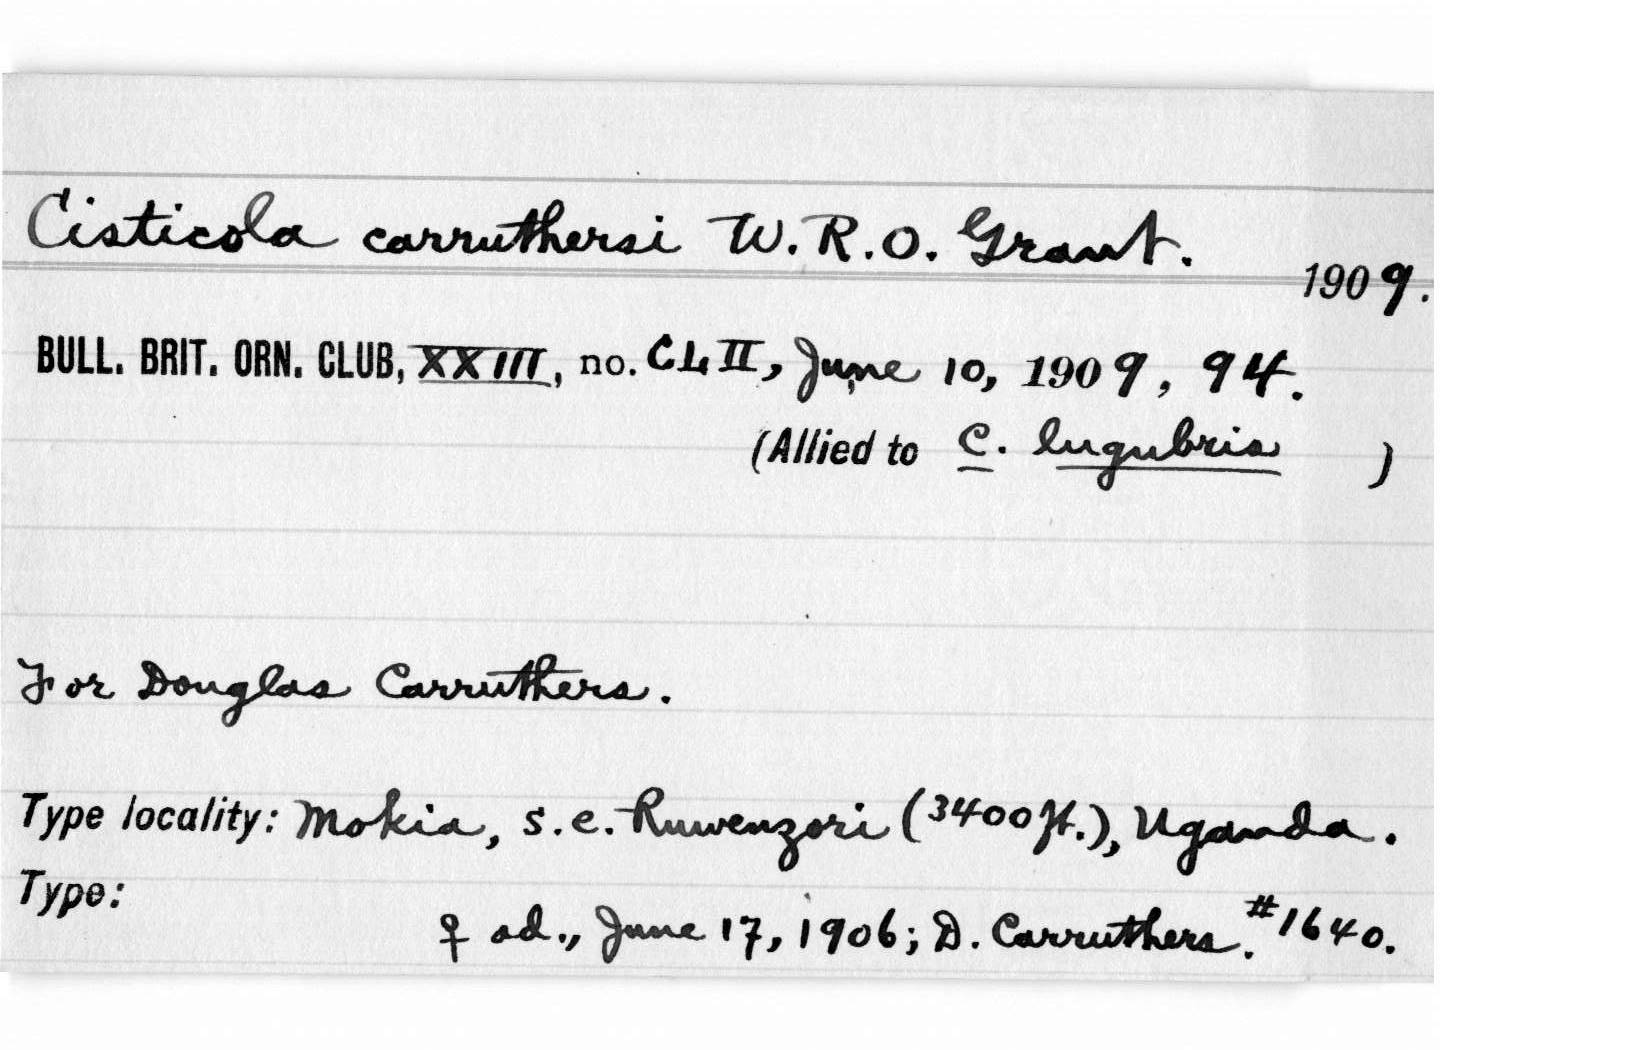 Cisticola carruthersi W.R.O. Grant.
1909.
BULL. BRIT. ORN. CLUB, XXIII, no. CLII, June 10, 1909, 94.
(Allied to C. lugubris )
For Douglas Carruthers.
Type locality: Mokia, s.e. Ruwenzori (3400 ft.), Uganda.
Type:
♀ ad., June 17, 1906; D. Carruthers. #1640.